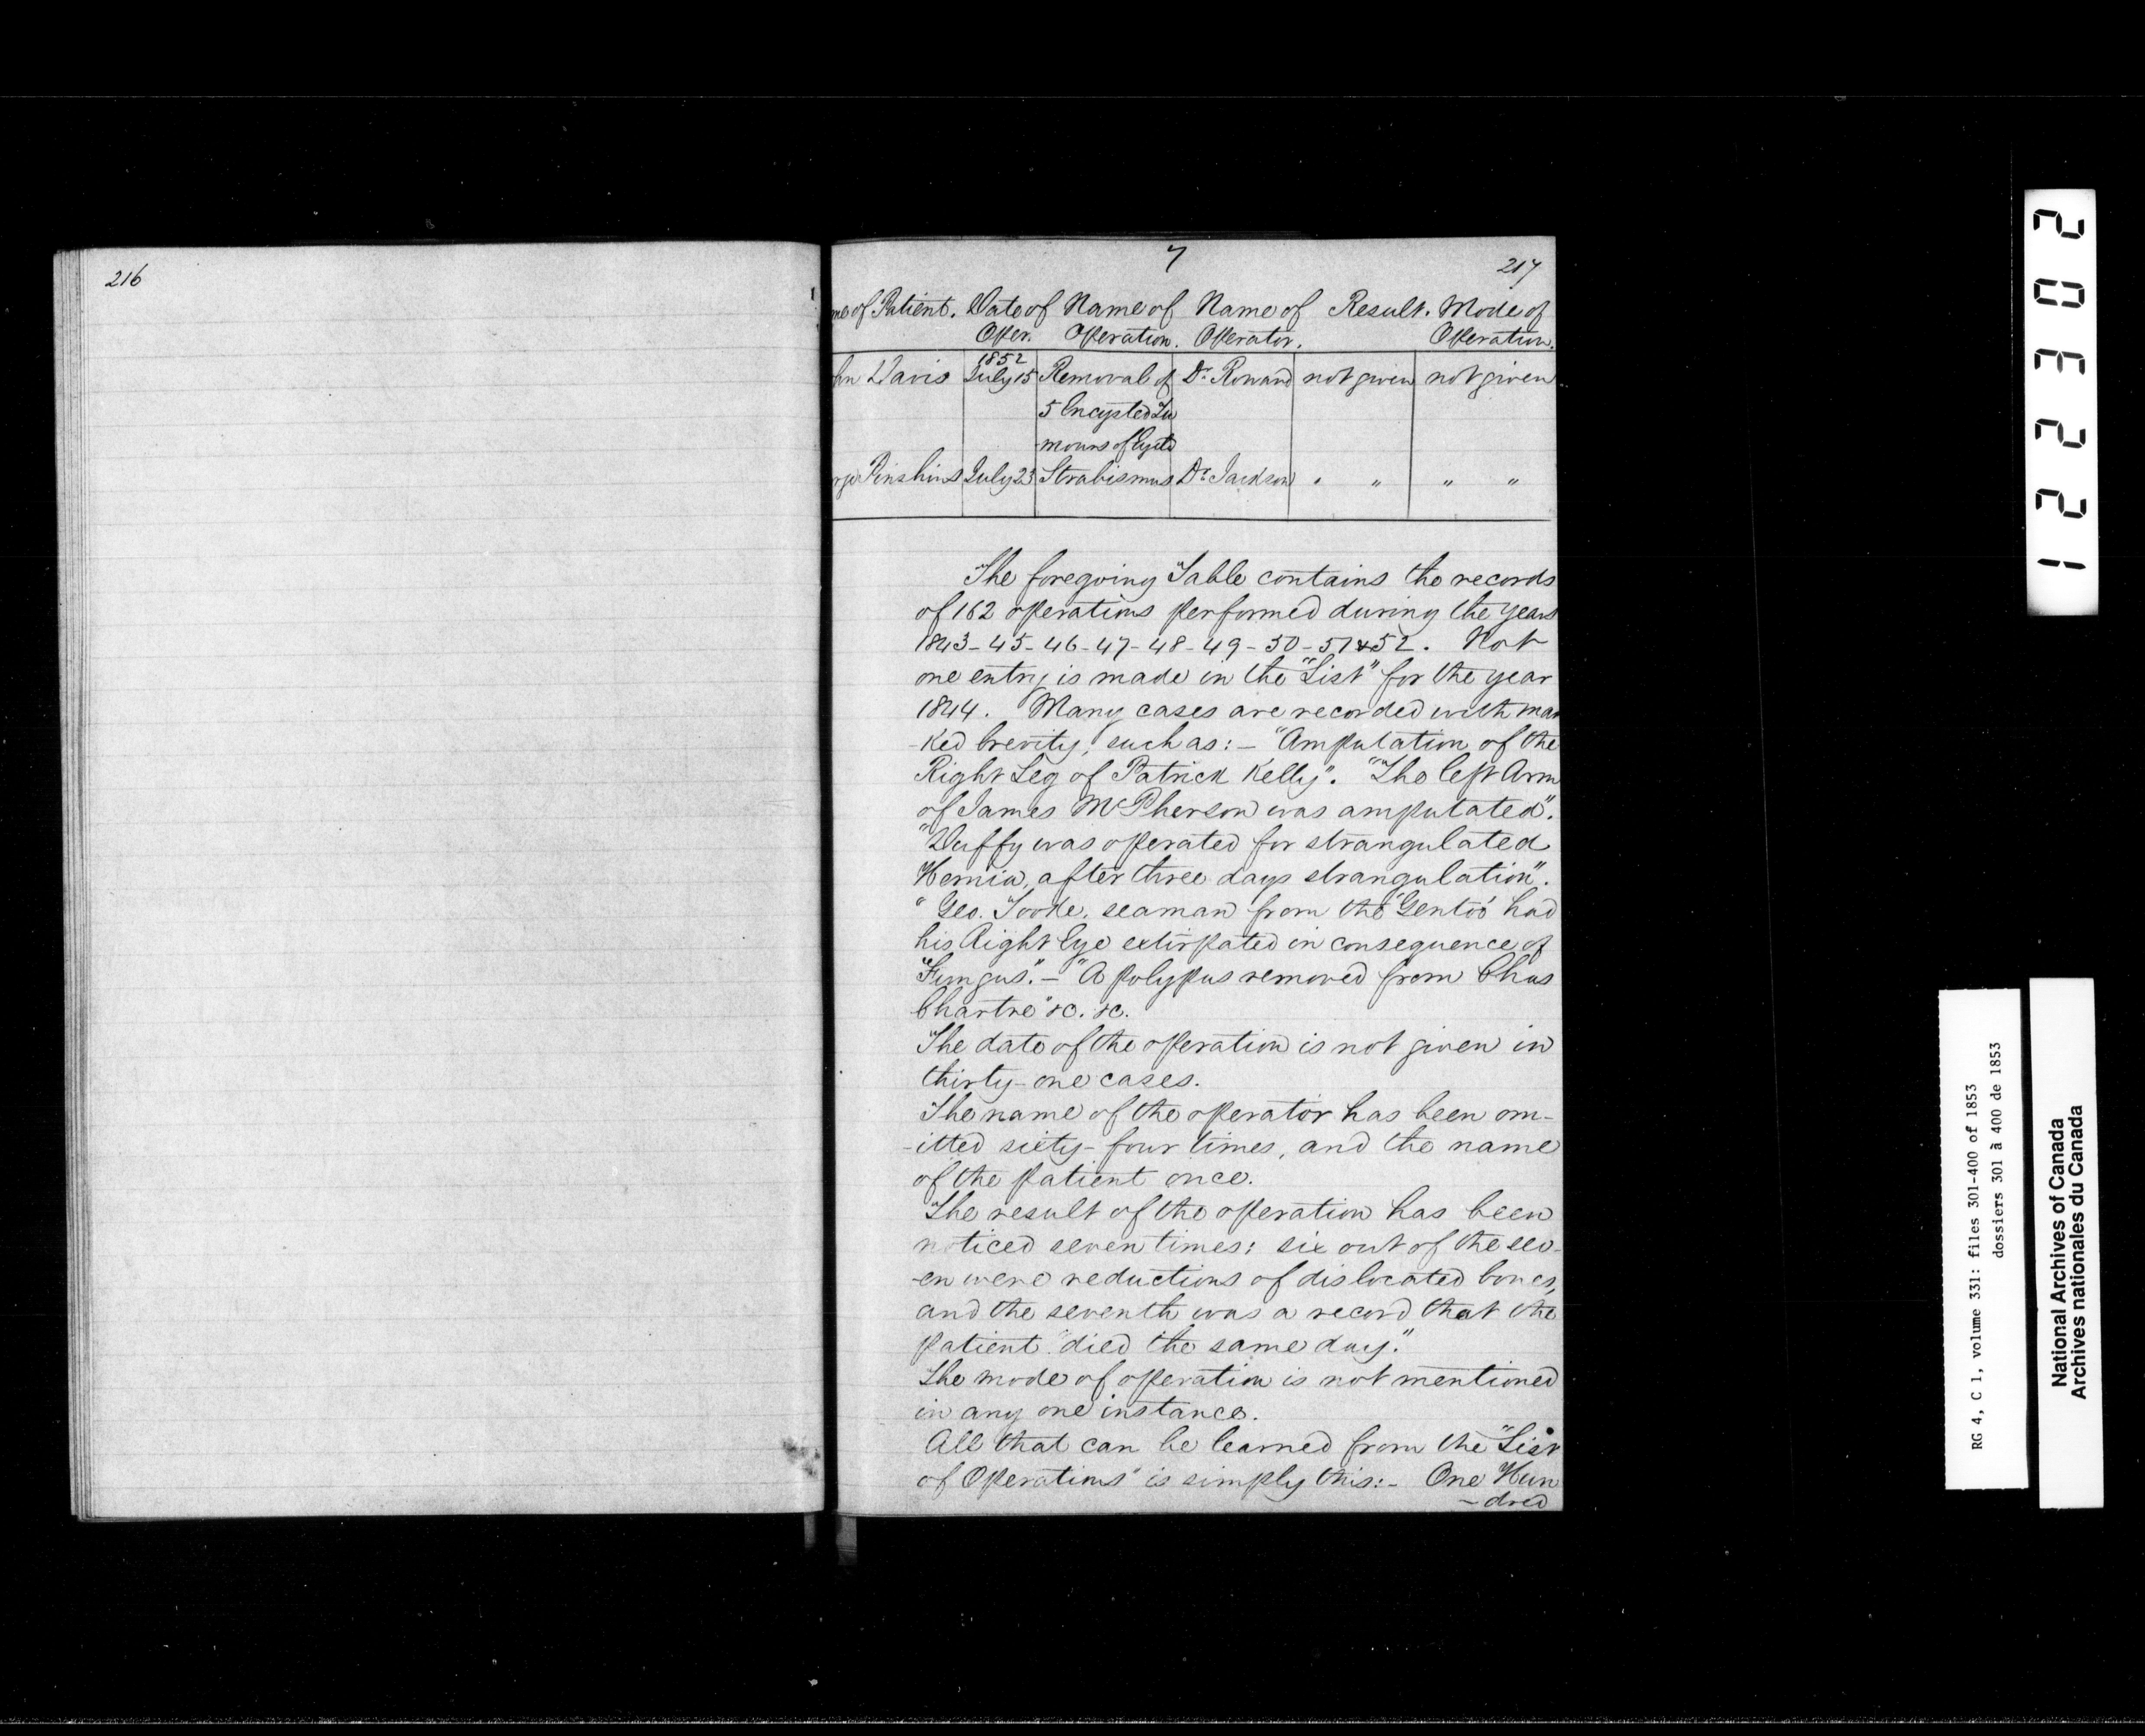 216
7
217
me of Patient. Date of Name of Name of Result. Mode of
Oper. Operation. Operator. Operation.
hn Davis 1852 July 15 Removal of Dr. Rowand not given not given
5 Encysted Tu
mours of Eyelid
rge July 23 Strabismus Dr. Jackson " " " "
The foregoing Table contains the records
of 162 operations performed during the years
1843-45-46-47-48-49-50-51&52. Not
one entry is made in the "List" for the year
1844. Many cases are recorded with mar
-ked brevity, such as:- "Amputation of the
Right Leg of Patrick Kelly". "The left Arm
of James McPherson was amputated".
"Duffy was operated for strangulated
Hernia, after three days strangulation".
" Geo. Toode, seaman from the 'Gentoo' had
his Right Eye extirpated in consequence of
"Fungus".- "A polypus removed from Chas
Chartre" &c. &c.
The date of the operation is not given in
thirty-one cases.
The name of the operator has been om-
-itted sixty-four times, and the name
of the patient once.
The result of the operation has been
noticed seven times: six out of the sev-
-en were reductions of dislocated bones,
and the seventh was a record that the
patient "died the same day."
The mode of operation is not mentioned
in any one instance.
All that can be learned from the "List
of Operations" is simply this:- One Hun
-dred
122302
RG 4, C 1, volume 331: files 301-400 of 1853
dossiers 301 à 400 de 1853
National Archives of Canada
Archives nationales du Canada